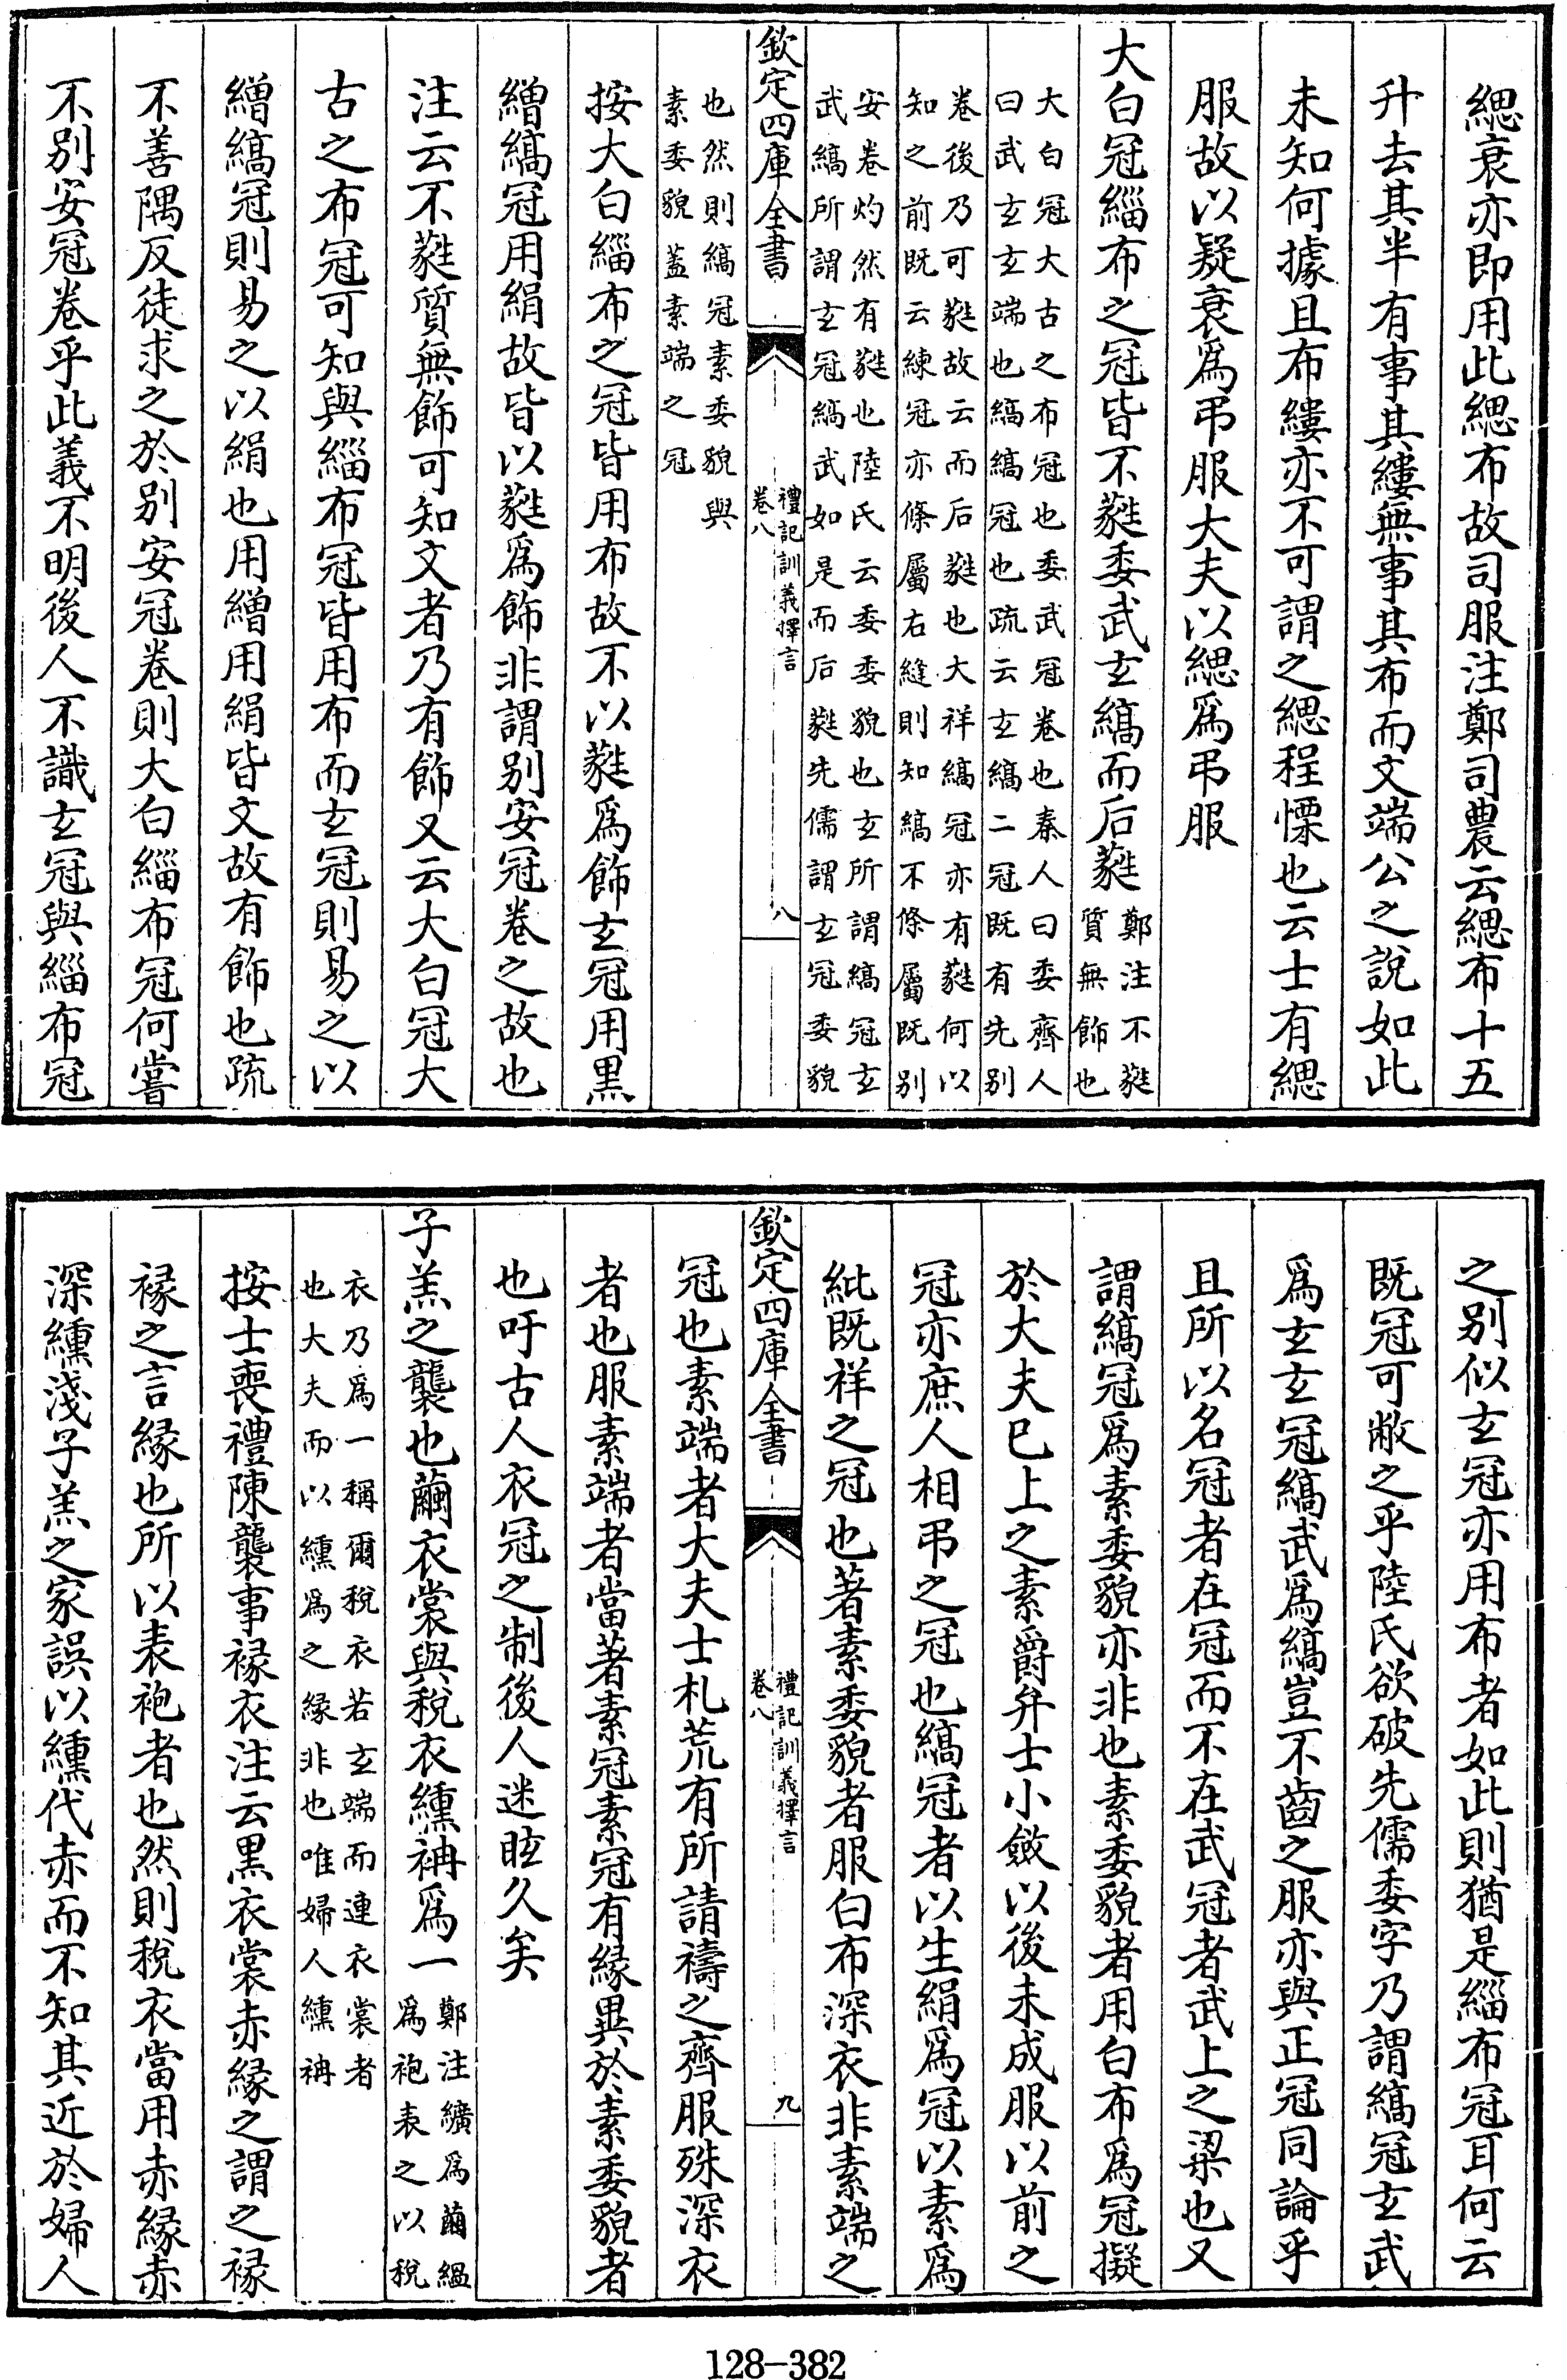 緦衰亦即用此緦布故司服注鄭司農云緦布十五
升去其半有事其縷無事其布而文端公之說如此
未知何據且布縷亦不可謂之緦程慄也云士有緦
服故以疑衰爲弔服大夫以緦爲弔服
大白冠緇布之冠皆不蕤委武玄縞而后蕤鄭注不蕤
質無飾也
大白冠大古之布冠也委武冠卷也秦人曰委齊人
曰武玄玄端也縞縞冠也疏云玄縞二冠既有先别
卷後乃可蕤故云而后蕤也大祥縞冠亦有蕤何以
知之前既云練冠亦條屬右縫則知縞不條屬既别
安卷灼然有蕤也陸氏云委委貌也玄所謂縞冠玄
武縞所謂玄冠縞武如是而后蕤先儒謂玄冠委貌
欽定四庫全書
禮記訓義擇言
卷八
八
也然則縞冠素委貌與
素委貌蓋素端之冠
按大白緇布之冠皆用布故不以蕤爲飾玄冠用黑
繒縞冠用絹故皆以蕤爲飾非謂别安冠卷之故也
注云不蕤質無飾可知文者乃有飾又云大白冠大
古之布冠可知與緇布冠皆用布而玄冠則易之以
繒縞冠則易之以絹也用繒用絹皆文故有飾也疏
不善隅反徒求之於别安冠卷則大白緇布冠何嘗
不别安冠卷乎此義不明後人不識玄冠與緇布冠
之别似玄冠亦用布者如此則猶是緇布冠耳何云
既冠可敝之乎陸氏欲破先儒委字乃謂縞冠玄武
爲玄玄冠縞武爲縞豈不齒之服亦與正冠同論乎
且所以名冠者在冠而不在武冠者武上之梁也又
謂縞冠爲素委貌亦非也素委貌者用白布爲冠擬
於大夫已上之素爵弁士小斂以後未成服以前之
冠亦庶人相弔之冠也縞冠者以生絹爲冠以素爲
紕既祥之冠也著素委貌者服白布深衣非素端之
欽定四庫全書
禮記訓義擇言
卷八
九
冠也素端者大夫士札荒有所請禱之齊服殊深衣
者也服素端者當著素冠素冠有緣異於素委貌者
也吁古人衣冠之制後人迷眩久矣
子羔之襲也繭衣裳與稅衣纁袡爲一鄭注纊爲繭緼
爲袍表之以稅
衣乃爲一稱爾稅衣若玄端而連衣裳者
也大夫而以纁爲之緣非也唯婦人纁袡
按士喪禮陳襲事褖衣注云黑衣裳赤緣之謂之褖
褖之言緣也所以表袍者也然則稅衣當用赤緣赤
深纁淺子羔之家誤以纁代赤而不知其近於婦人
128-382